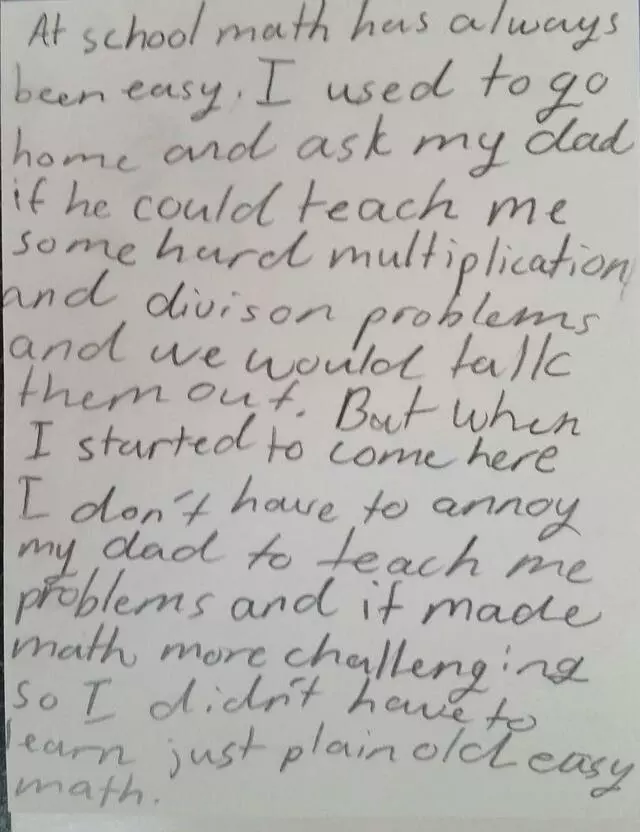 At school math has always
been easy. I used to go
home and ask my dad
if he could teach me
some hard multiplication
and divison problems
and we would talk
them out. But when
I started to come here
I don't have to annoy
my dad to teach me
problems and it made
math more challenging
so I didn't have to
learn just plain old easy
math.